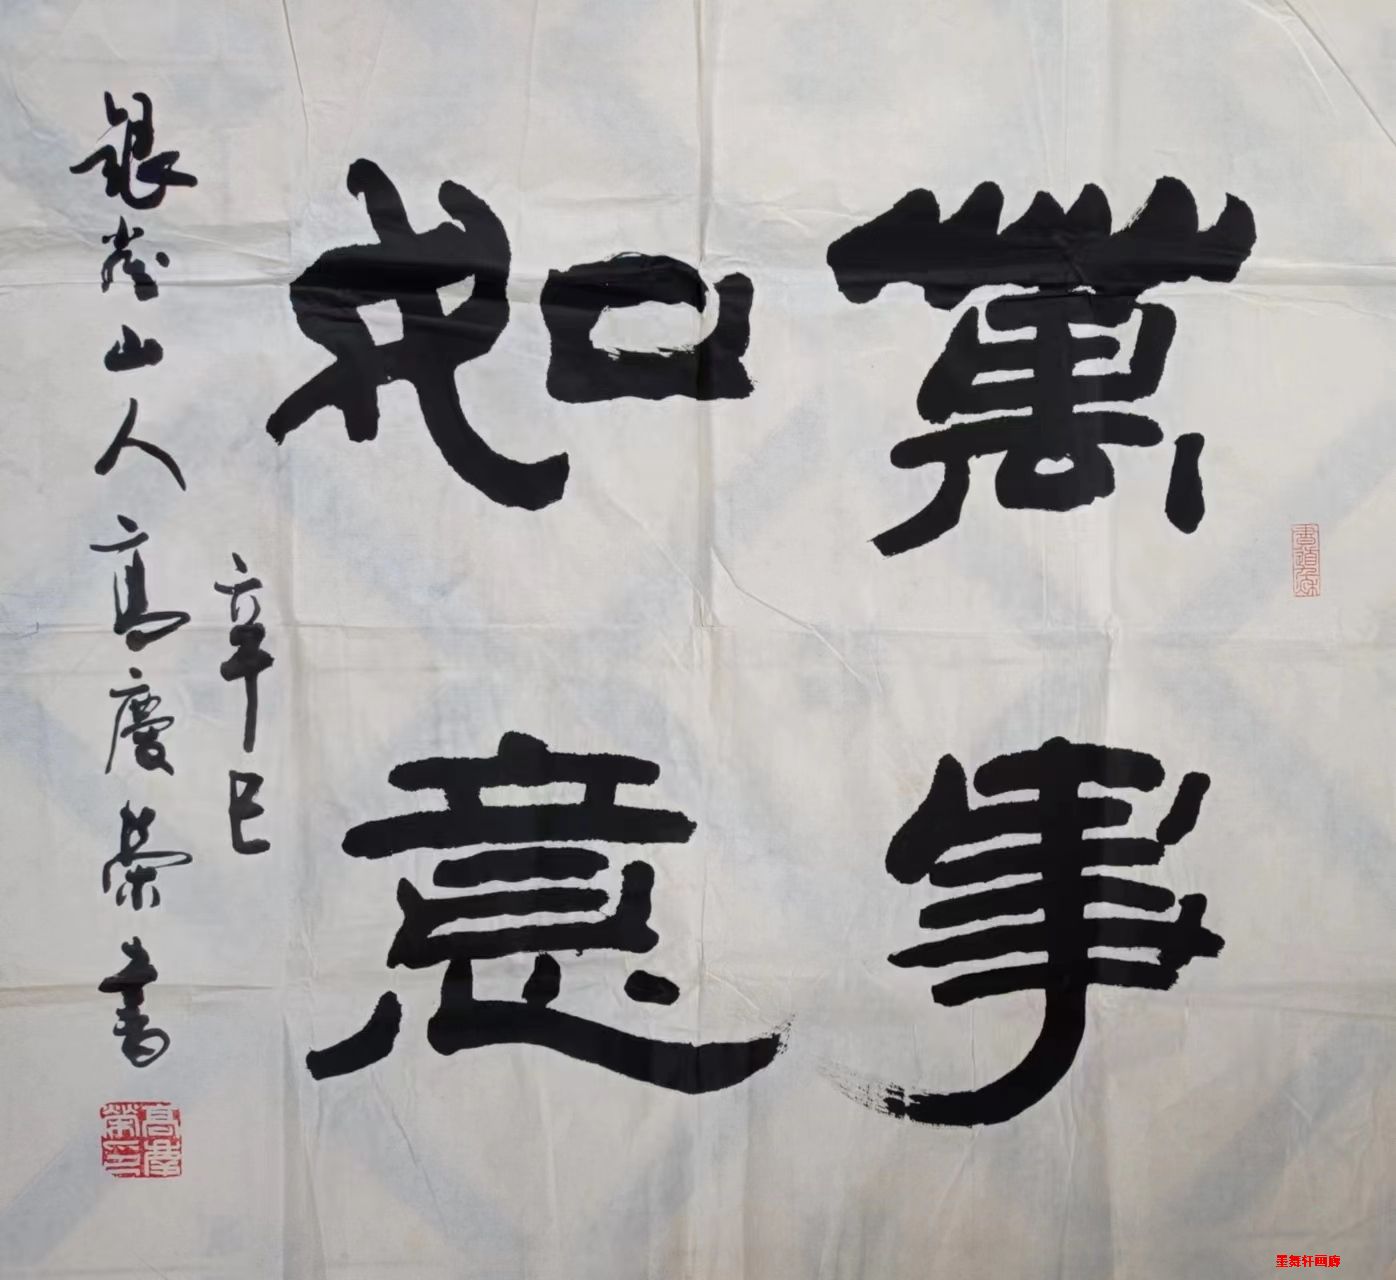 萬事
如意
辛巳
銀崖山人高慶榮書
高慶榮印
墨舞轩画廊